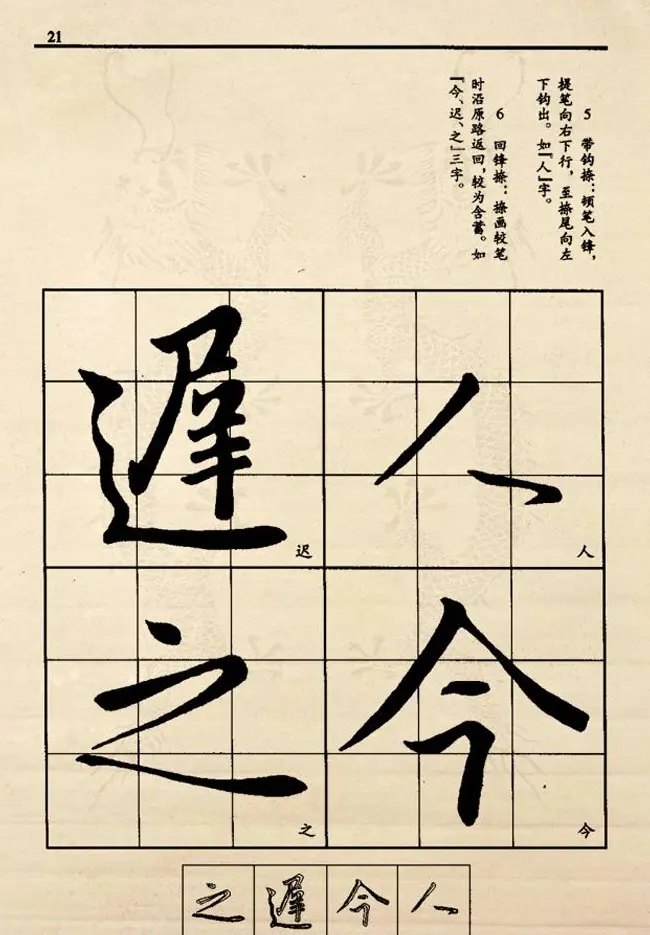 21
5 带钩捺：顿笔入锋，
提笔向右下行，至捺尾向左
下钩出。如『人』字。
6 回锋捺：捺画较笔
时沿原路返回，较为含蓄。如
『今、迟、之』三字。
人
人
今
今
遲
迟
之
之
之遲今人